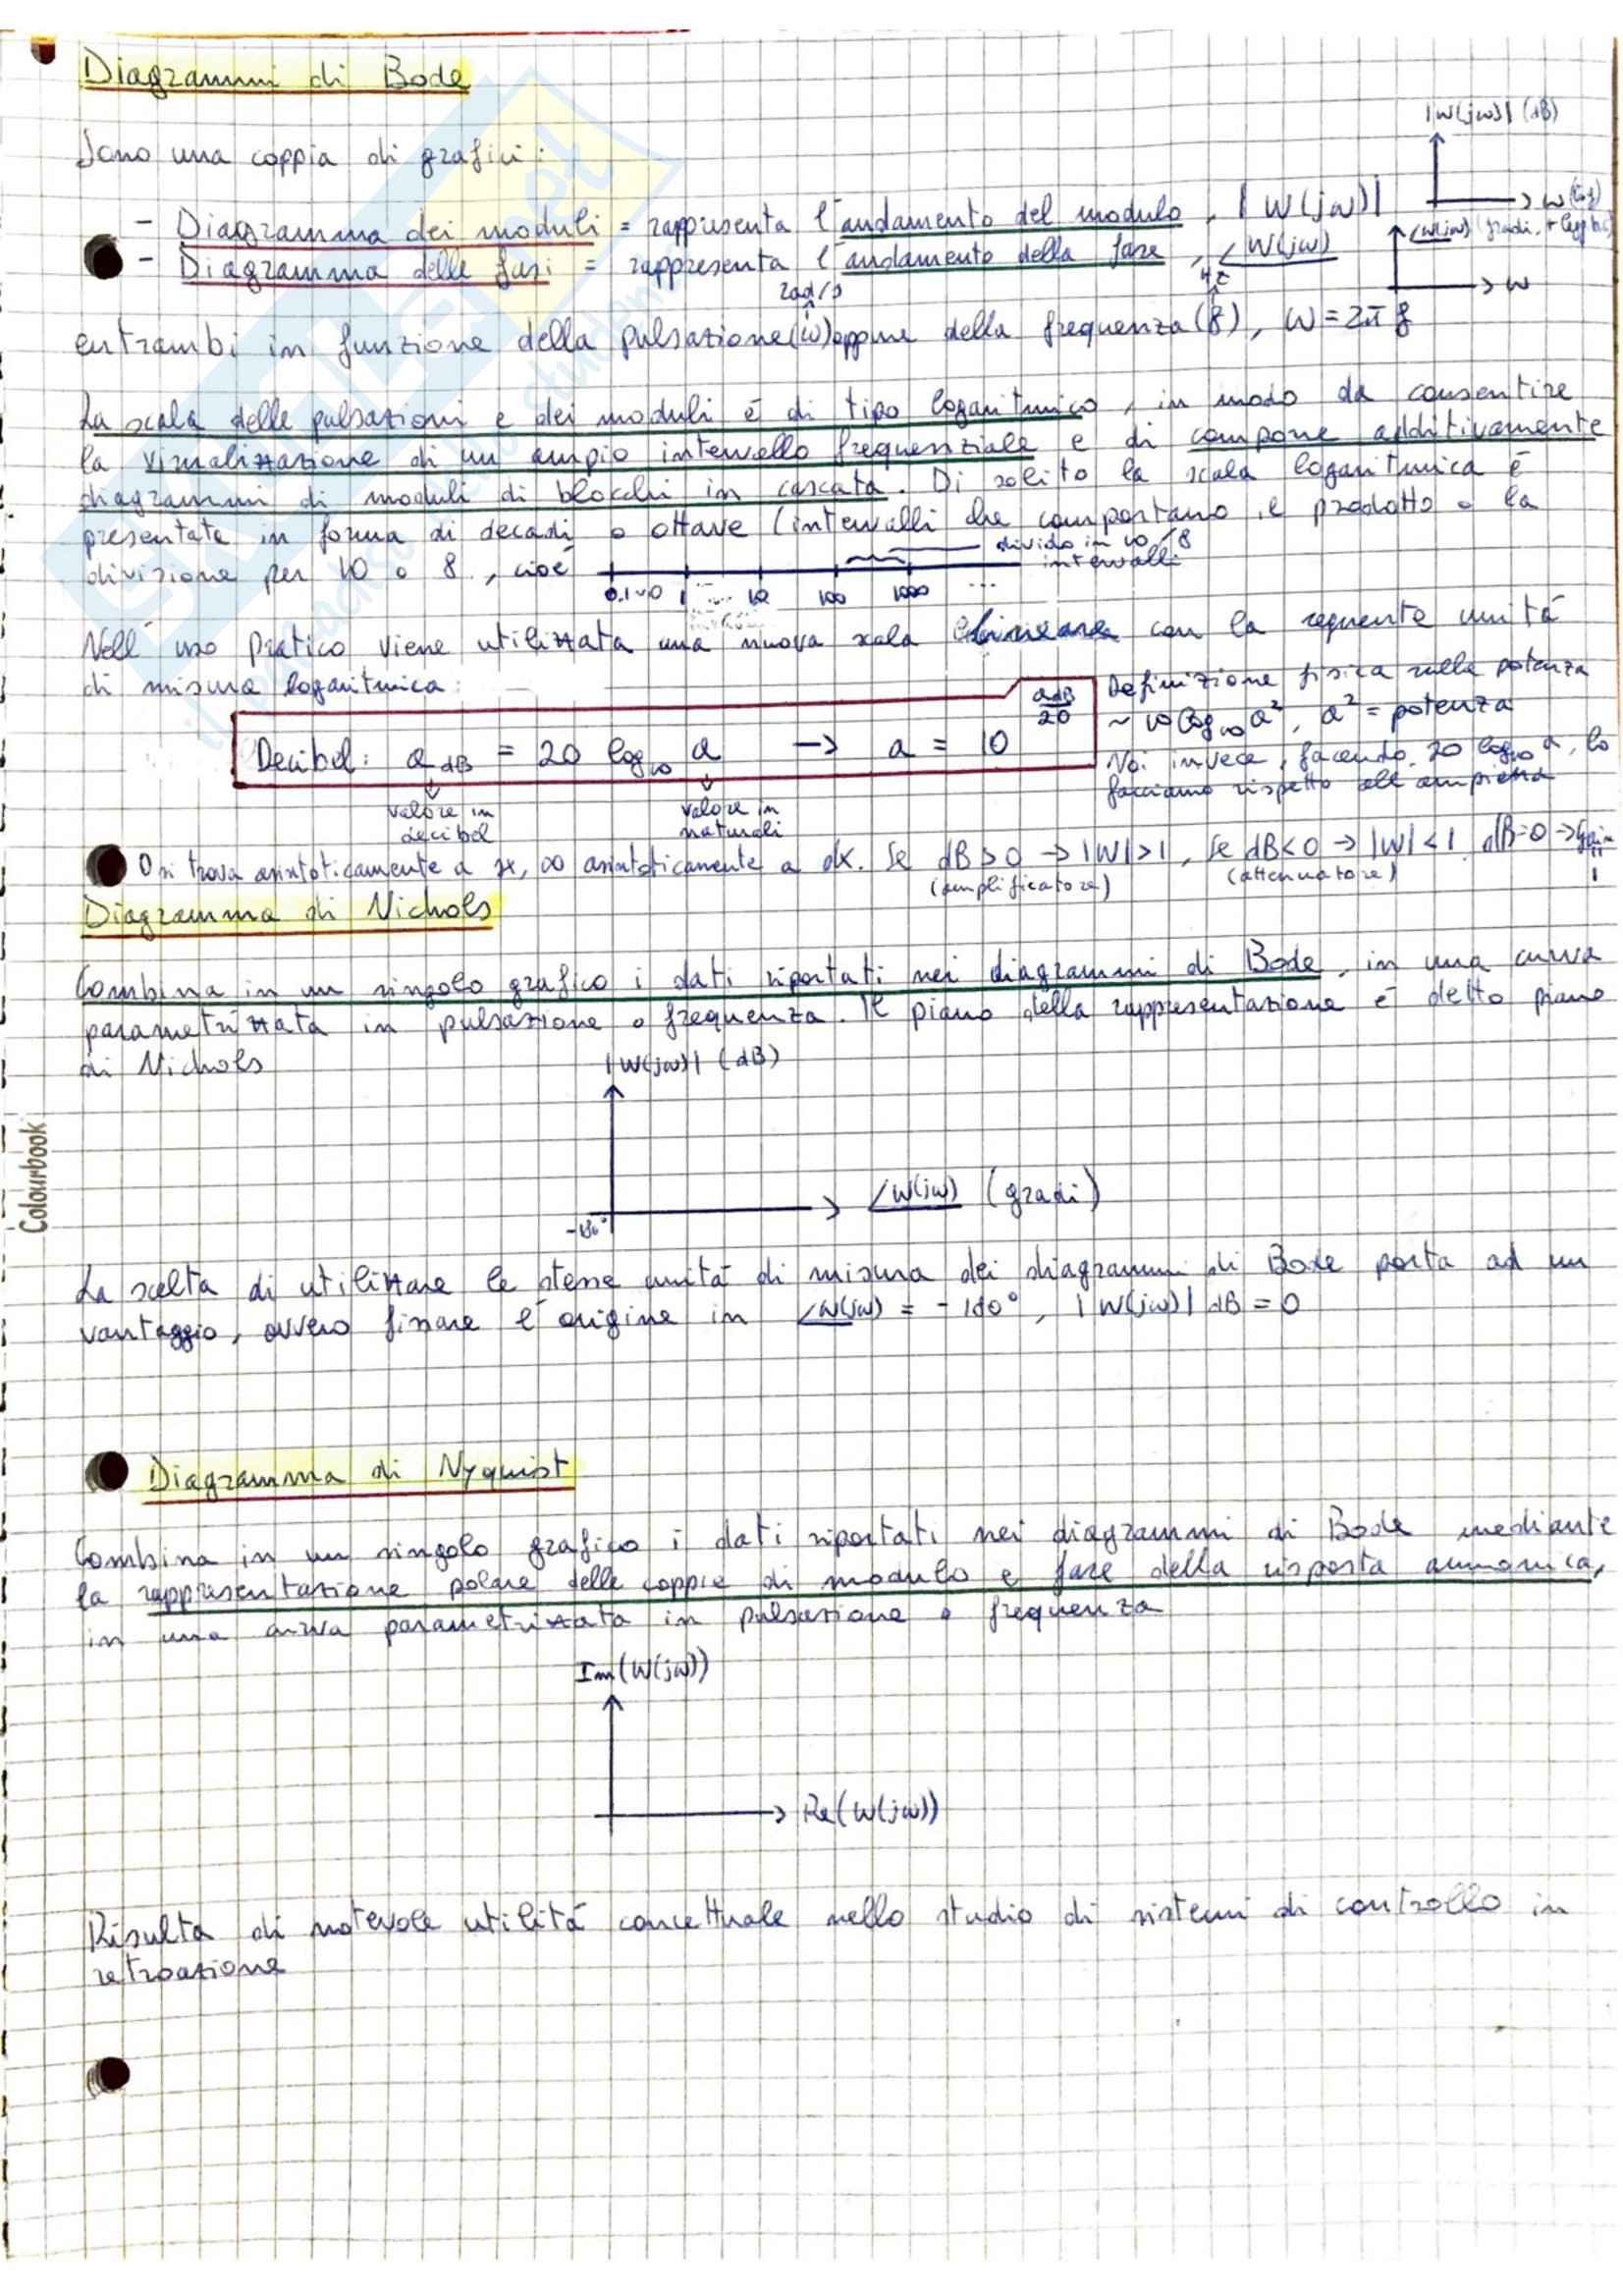 Diagrammi di Bode
|W(jω)| (dB)
Sono una coppia di grafici:
ω (log)
- Diagramma dei moduli = rappresenta l'andamento del modulo, |W(jω)|
∠W(jω) (gradi,
- Diagramma delle fasi = rappresenta l'andamento della fase, ∠W(jω)
ω
rad/s
Hz
entrambi in funzione della pulsazione (ω) oppure della frequenza (f), ω = 2π f
La scala delle pulsazioni e dei moduli è di tipo logaritmico, in modo da consentire
la visualizzazione di un ampio intervallo frequenziale e di compone additivamente
diagrammi di moduli di blocchi in cascata. Di solito la scala logaritmica è
presentata in forma di decadi o ottave (intervalli che comportano il prodotto o la
divizione per 10 o 8, cioè
divido in 10/8
intervalli
0.1 1 ... 10 100 1000 ...
Nell'uso pratico viene utilizzata una nuova scala lineare con la seguente unità
di misura logaritmica:
Definizione fisica sulla potenza
~ 10 log₁₀ a², a² = potenza
Decibel: a dB = 20 log₁₀ a → a = 10^(a dB/20)
Noi invece, facendo 20 log₁₀ a, lo
facciamo rispetto all'ampiezza
valore in
decibel
valore in
naturali
0 si trova asintoticamente a sx, ∞ asintoticamente a dx. Se dB > 0 → |W| > 1, se dB < 0 → |W| < 1, dB = 0 → Gain = 1
(amplificatore)
(attenuatore)
Diagramma di Nichols
Combina in un singolo grafico i dati riportati nei diagrammi di Bode, in una curva
parametrizzata in pulsazione o frequenza. Il piano della rappresentazione è detto piano
di Nichols
|W(jω)| (dB)
∠W(jω) (gradi)
-180°
La scelta di utilizzare le stesse unità di misura dei diagrammi di Bode porta ad un
vantaggio, ovvero fissare l'origine in ∠W(jω) = -180°, |W(jω)| dB = 0
Colourbook
Diagramma di Nyquist
Combina in un singolo grafico i dati riportati nei diagrammi di Bode mediante
la rappresentazione polare delle coppie di modulo e fase della risposta armonica,
in una curva parametrizzata in pulsazione o frequenza
Im(W(jω))
Re(W(jω))
Risulta di notevole utilità concettuale nello studio di sistemi di controllo in
retroazione